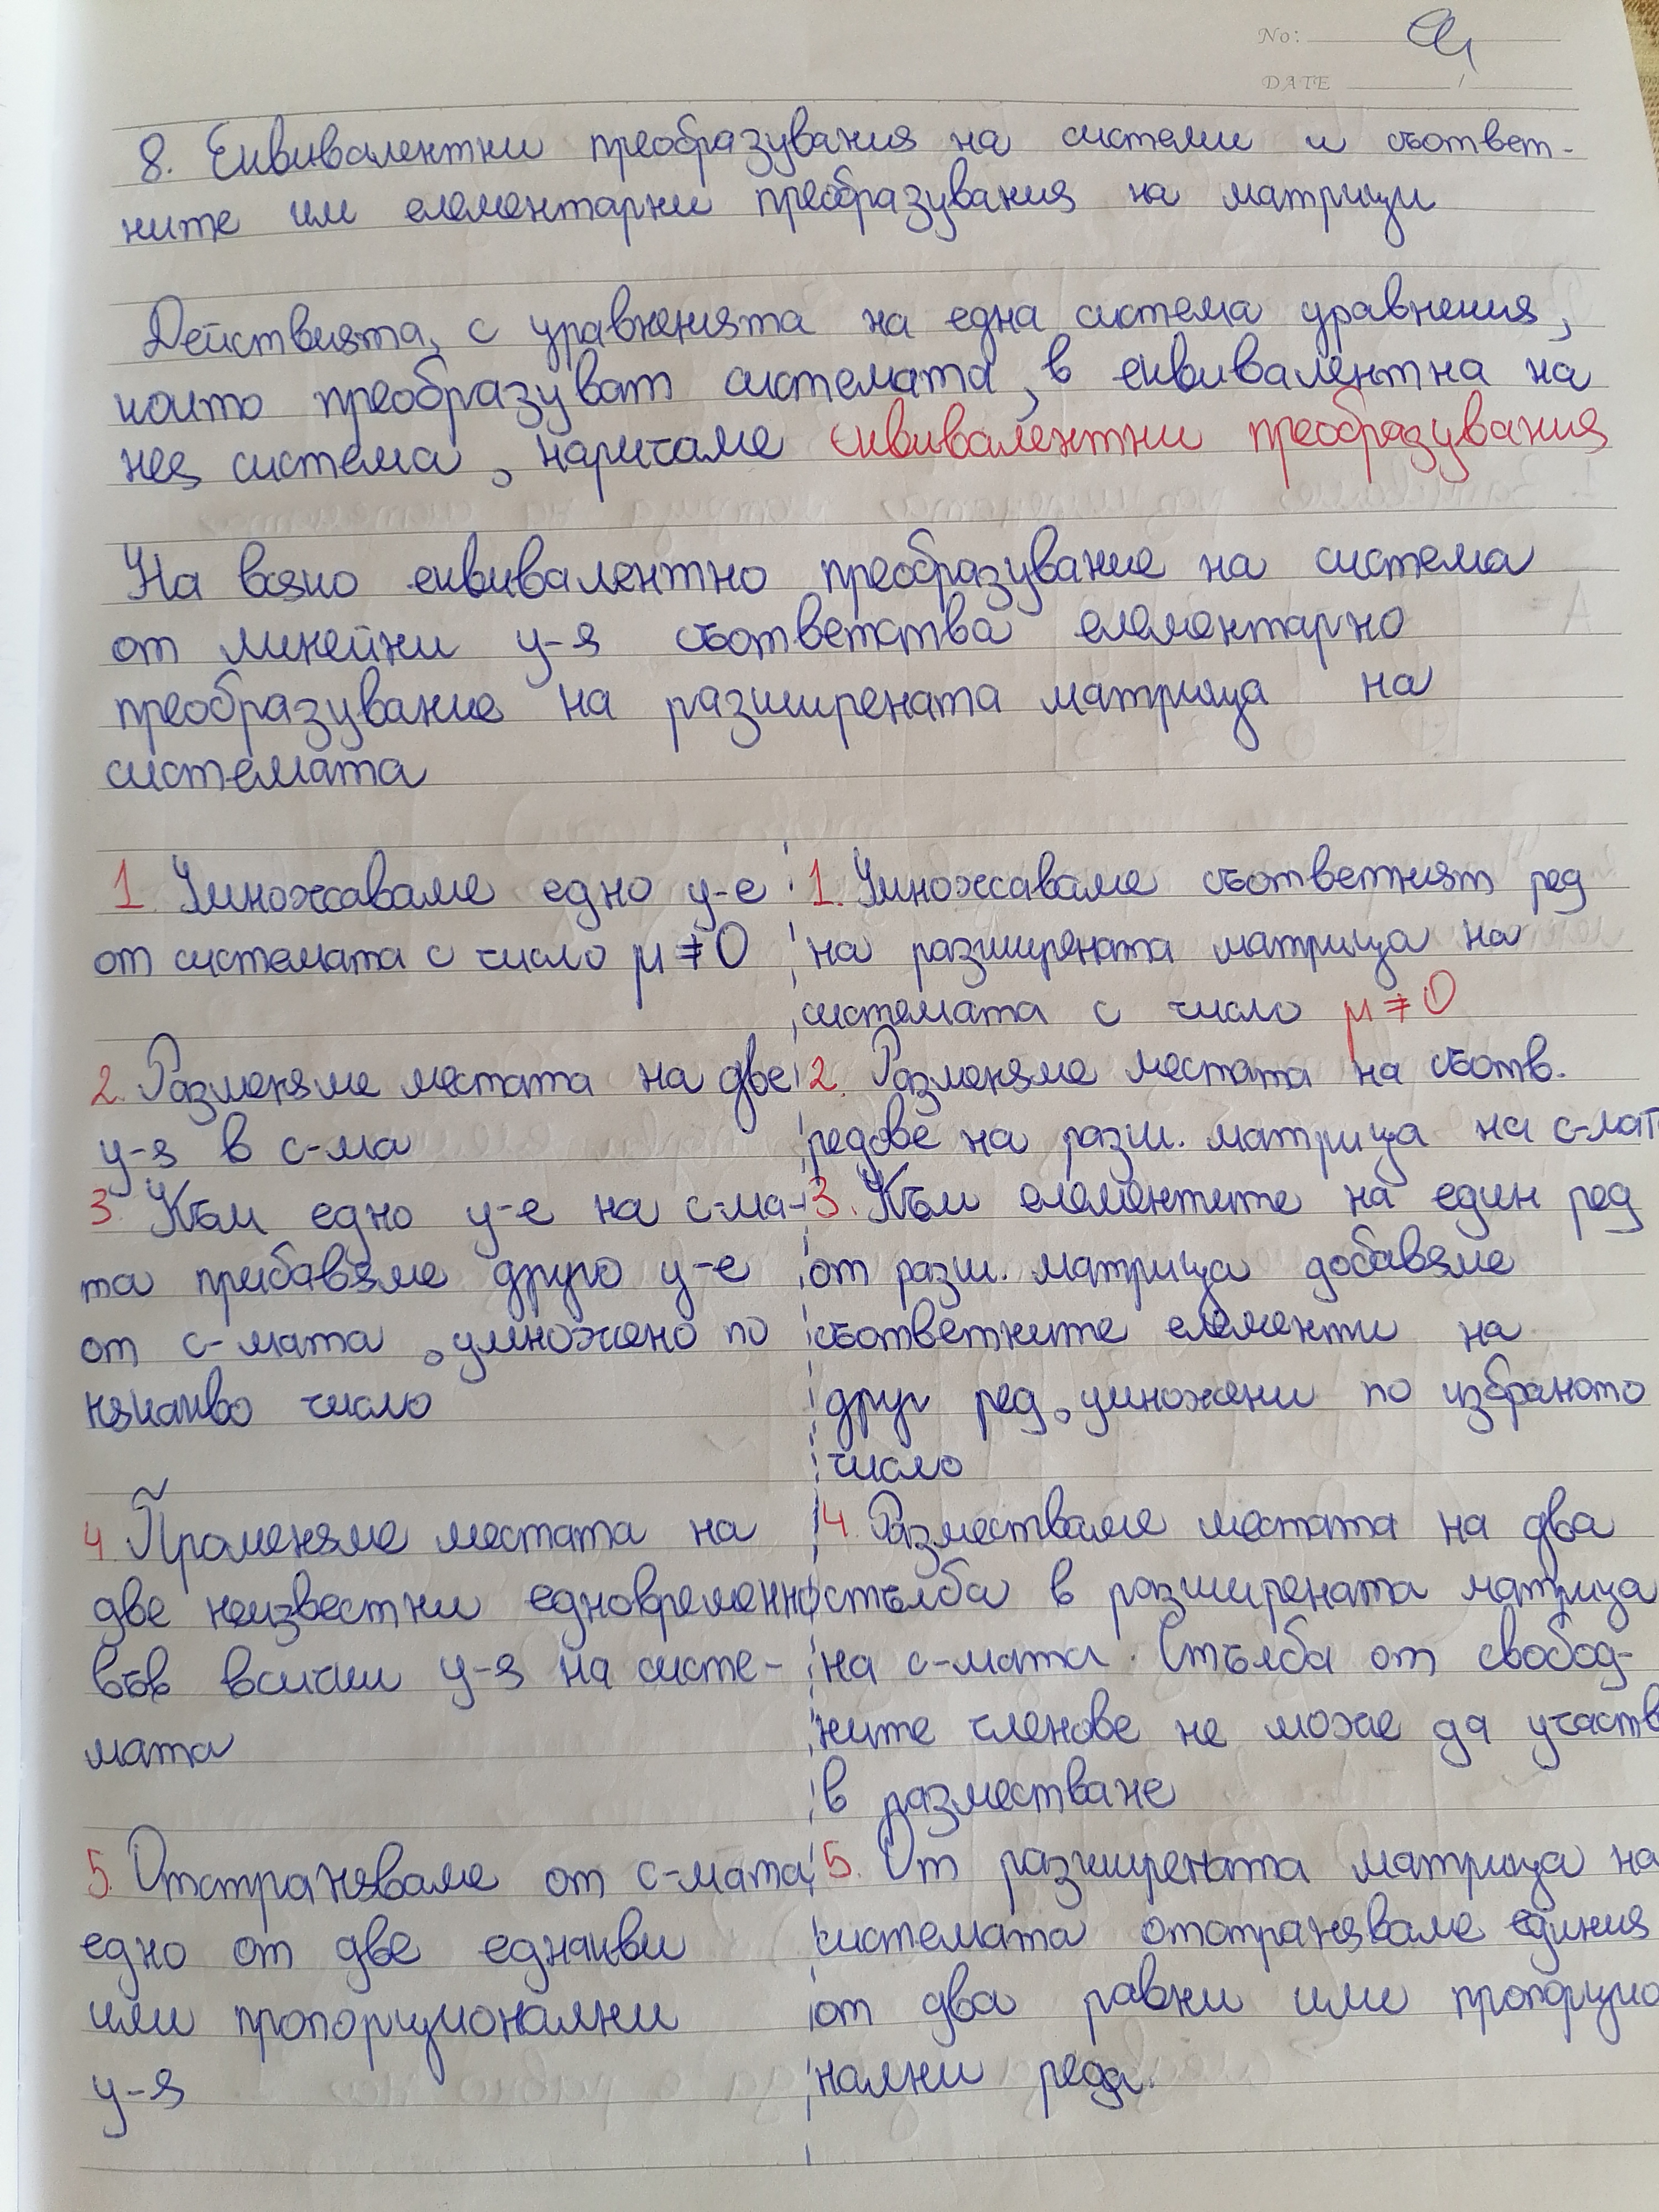 No:
DATE /
8. Еквивалентни преобразувания на системи и съответ-
ните им елементарни преобразувания на матрици
Действията, с уравненията на една система уравнения,
които преобразуват системата, в еквивалентна на
нея система, наричаме еквивалентни преобразувания
На всяко еквивалентно преобразувание на система
от линейни у-я съответства елементарно
преобразувание на разширената матрица на
системата
1. Умножаваме едно у-е
от системата с число μ ≠ 0
2. Разменяме местата на две
у-я в с-ма
3. Към едно у-е на с-ма-
та прибавяме друго у-е
от с-мата, умножено по
някакво число
4. Променяме местата на
две неизвестни едновременно
във всички у-я на систе-
мата
5. Отстраняваме от с-мата
едно от две еднакви
или пропорционални
у-я
1. Умножаваме съответният ред
на разширената матрица на
системата с число μ ≠ 0
2. Разменяме местата на съотв.
редове на разш. матрица на с-мат
3. Към елементите на един ред
от разш. матрица добавяме
съответните елементи на
друг ред, умножени по избраното
число
4. Разместваме местата на два
стълба в разширената матрица
на с-мата. Стълба от свобод-
ните членове не може да участв
в разместване
5. От разширената матрица на
системата отстраняваме единия
от два равни или пропорцио
нални реда.